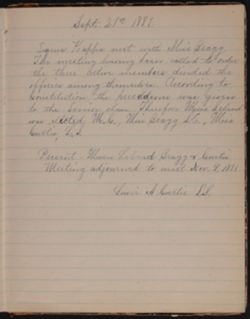 Sept. 21st 1881
Sigma Kappa met with Miss Bragg.
The meeting having been called to order
the three active members divided the
offices among themselves. According to
Constitution the precedence was given
to the Senior class. Therefore Miss
was elected, W.M., Miss Bragg Sc., Miss
Curtis, L.S.
Present - Misses Bragg & Curtis
Meeting adjourned to meet Nov. 8, 1881.
A Curtis L.S.